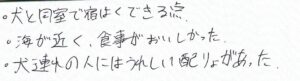 ・犬と同室で宿はくできる点.
・海が近く、食事がおいしかった.
・犬連れの人にはうれしい配りょがあった.